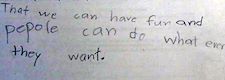 That we can have fun and
pepole can do what ever
they want.